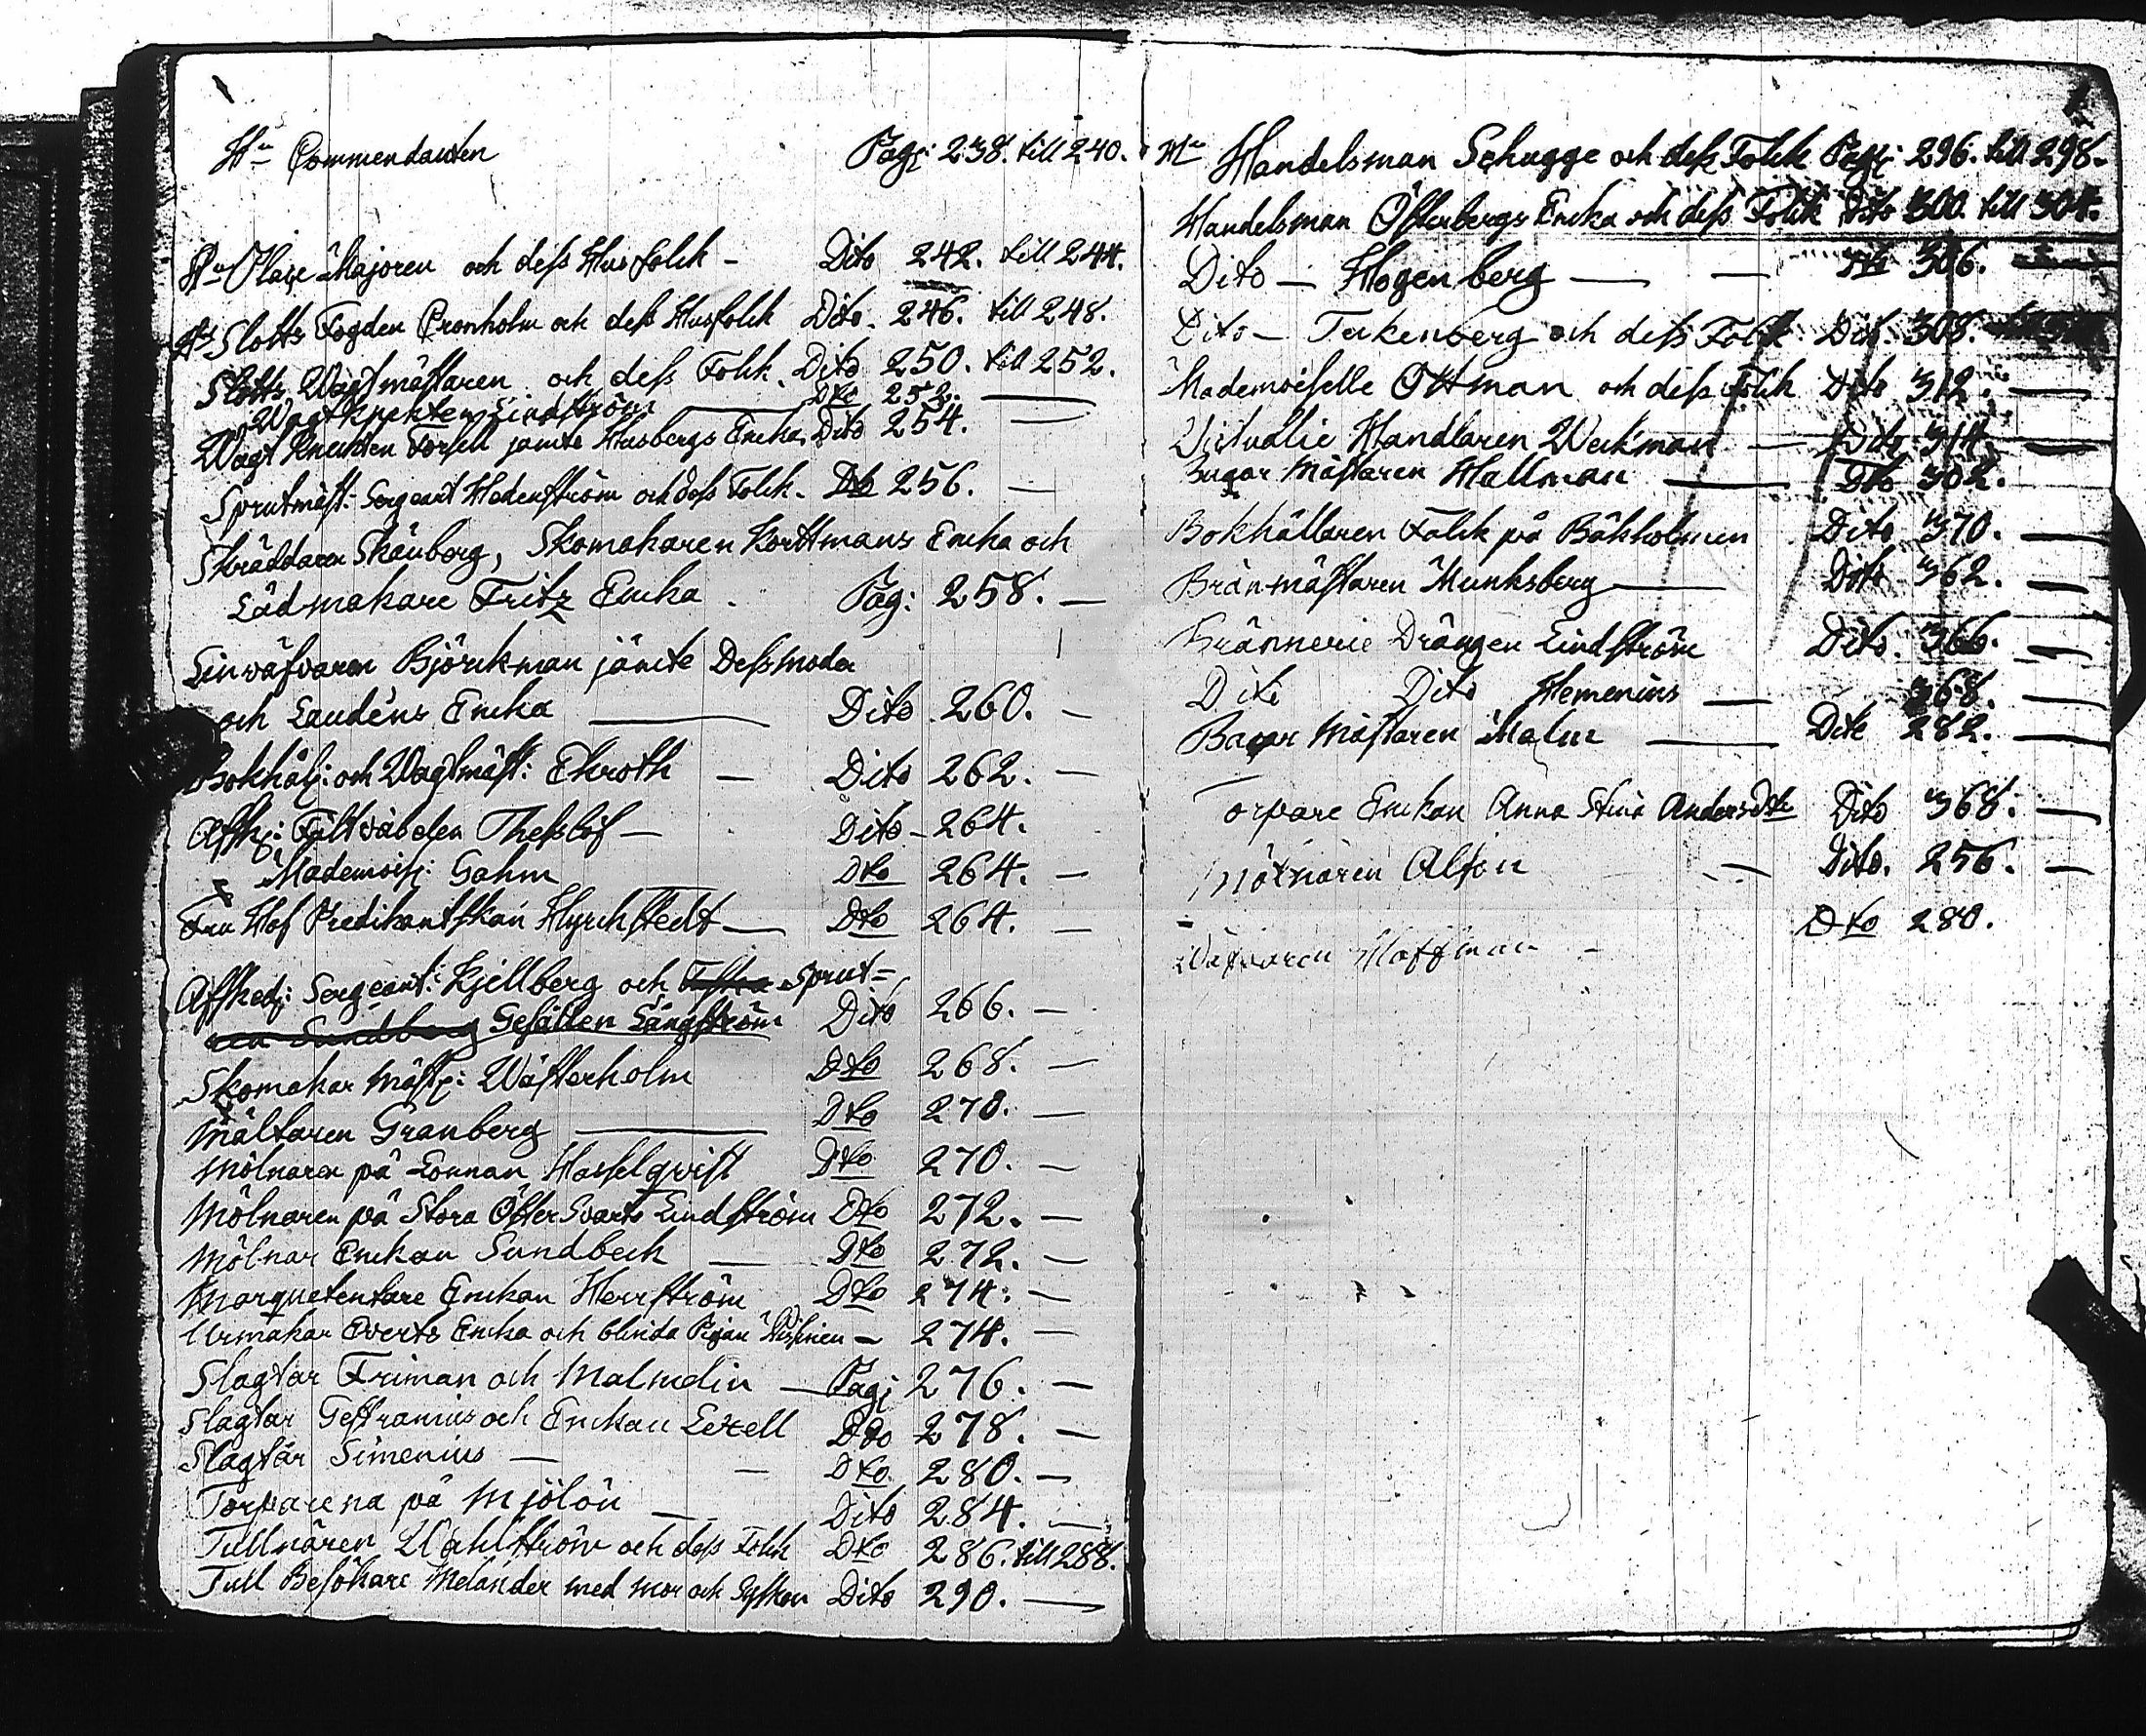 Hr Commendanten Pag: 238. till 240.
Hr Place Majoren och dess Husfolck - Dito 242. till 244.
Hr Slotts Fogden Cronholm och dess Husfolck Dito. 246. till 248.
Slotts Wagtmästaren och dess Folck. Dito 250. till 252.
Wagt Knekten Lindström Dto 252. —
Wagt Knekten Forsell jämte Husbergs Encka Dito 254. —
Sprutmäst: Sergeant Hedenström och dess Folck. Dto 256. —
Skräddaren Skönberg, Skomakaren Korttmans Encka och
Lådmakare Fritz Encka . Pag: 258. —
Linwäfvaren Björckman jämte Dess moder
och Laudéns Encka — Dito 260. —
Bokhål: och Wagtmäst: Ekroth — Dito 262. —
Afsk: Fältväbelen Thesslöf — Dito - 264.
Mademois: Gahm Dto 264. —
Fru Hof Predikantskan Hyrchstedt — Dto 264. —
Afsked: Sergeant: Kjellberg och Sprut-
Gesällen Långström Dito 266. —
Skomakar Mäst: Wästerholm Dto 268. —
Mältaren Granberg — Dto 270. —
Mölnaren på Lonnan Hasselqvist Dto 270. —
Mölnaren på Stora Öster Svartö Lindström Dto 272. —
Mölnar Enckan Sundbeck — Dto 272. —
Marquetentare Enckan Herrström Dto 274. —
Urmakar Everts Encka och blinda Pigan — 274. —
Slagtar Friman och Malmelin — Pag: 276. —
Slagtar Geffranius och Enckan Lezell Dto 278. —
Slagtar Simenius — — Dto 280. —
Torparena på Mjölöu — Dito 284. —
Tullnären Wahlström och dess Folck Dto 286. till 288.
Tull Besökare Melander med mor och Syskon Dito 290. —
Hr Handelsman Schugge och dess Folck Pag: 296. till 298.
Handelsman Österbergs Encka och dess Folck Dito 300. till 304.
Dito — Hogenberg — — Dto 306. —
Dito — Teckenberg och dess Folck Dito. 308.
Mademoiselle Ottman och dess Folck Dito 312. —
Victualie Handlaren Weckman — Dito 314. —
Bagar Mästaren Hallman — Dto 302.
Bokhållaren Falck på Bäkholmen Dito 370. —
Brän-mästaren Munksberg — Dito 362. —
Brännerie Drängen Lindström Dito. 366. —
Dito Dito Hemenius — 368. —
Bagar Mästaren Malm — Dito 282. —
Torpare Enckan Anna Stina Andersdtr Dito 368. —
Mölnaren Alfin — Dito. 256. —
Wäfvaren Hoffman - Dto 280.